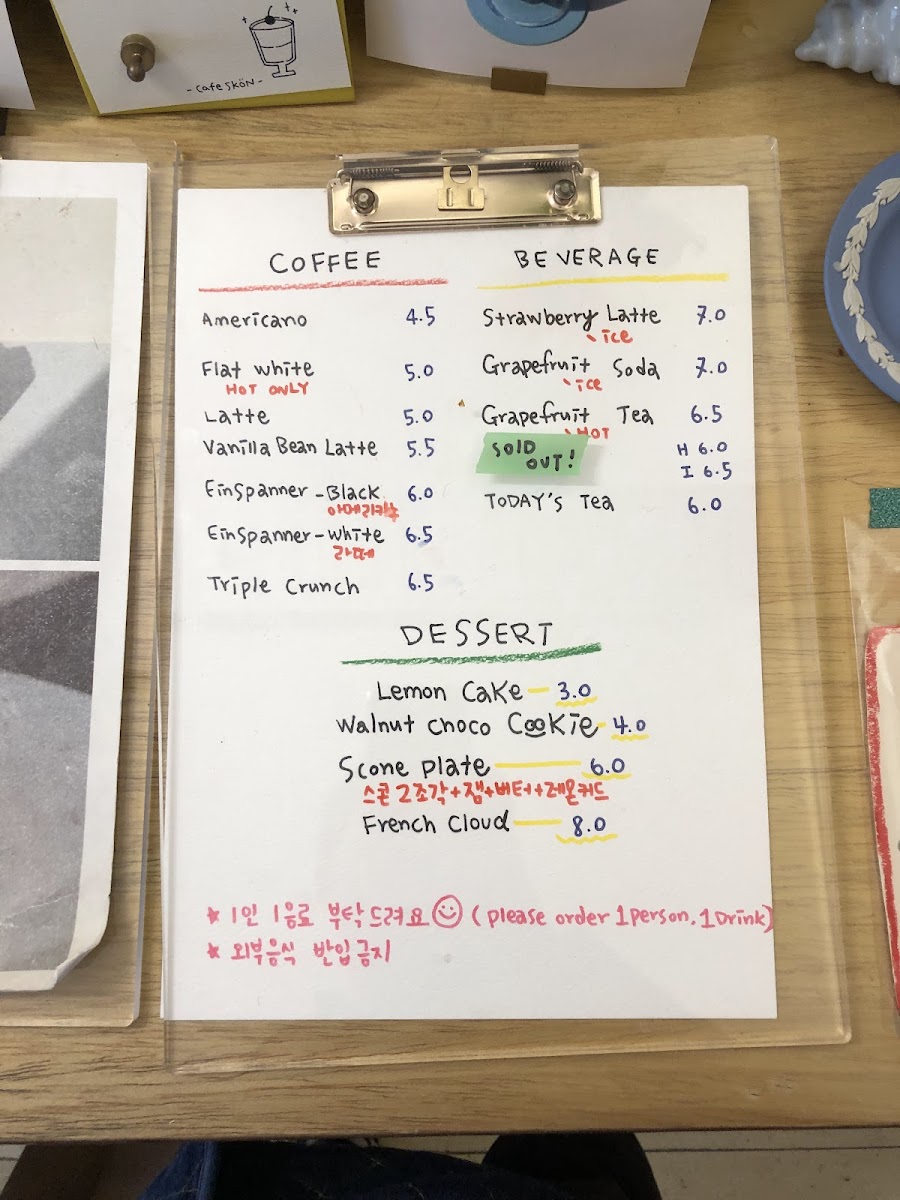 - Cafe SKÖN -
COFFEE
Americano 4.5
Flat white 5.0
HOT ONLY
Latte 5.0
Vanilla Bean Latte 5.5
EinSpanner - Black 6.0
아메리카노
EinSpanner - white 6.5
라떼
Triple Crunch 6.5
BEVERAGE
Strawberry Latte 7.0
ice
Grapefruit Soda 7.0
ice
Grapefruit Tea 6.5
HOT
SOLD
OUT!
H 6.0
I 6.5
TODAY'S Tea 6.0
DESSERT
Lemon Cake 3.0
Walnut Choco Cookie 4.0
Scone plate 6.0
스콘 2조각+잼+버터+레몬커드
French Cloud 8.0
★ 1인 1음료 부탁드려요 (please order 1person. 1Drink)
★ 외부음식 반입금지